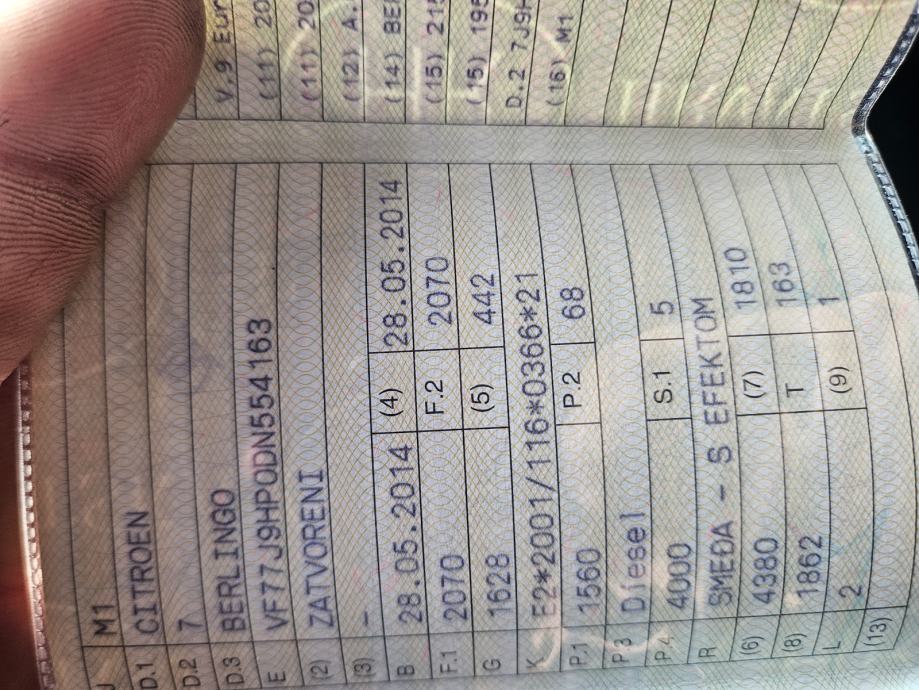 J M1
D.1 CITROEN
D.2 7
D.3 BERLINGO
E VF77J9HP0DN554163
(2) ZATVORENI
(3) -
B 28.05.2014 (4) 28.05.2014
F.1 2070 F.2 2070
G 1628 (5) 442
K E2*2001/116*0366*21
P.1 1560 P.2 68
P.3 Diesel
P.4 4000 S.1 5
R SMEĐA - S EFEKTOM
(6) 4380 (7) 1810
(8) 1862 T 163
L 2 (9) 1
(13)
V.9 Eur
(11) 20
(11) 20
(12) A.
(14) BE
(15) 215
(15) 195
D.2 7J9H
(16) M1